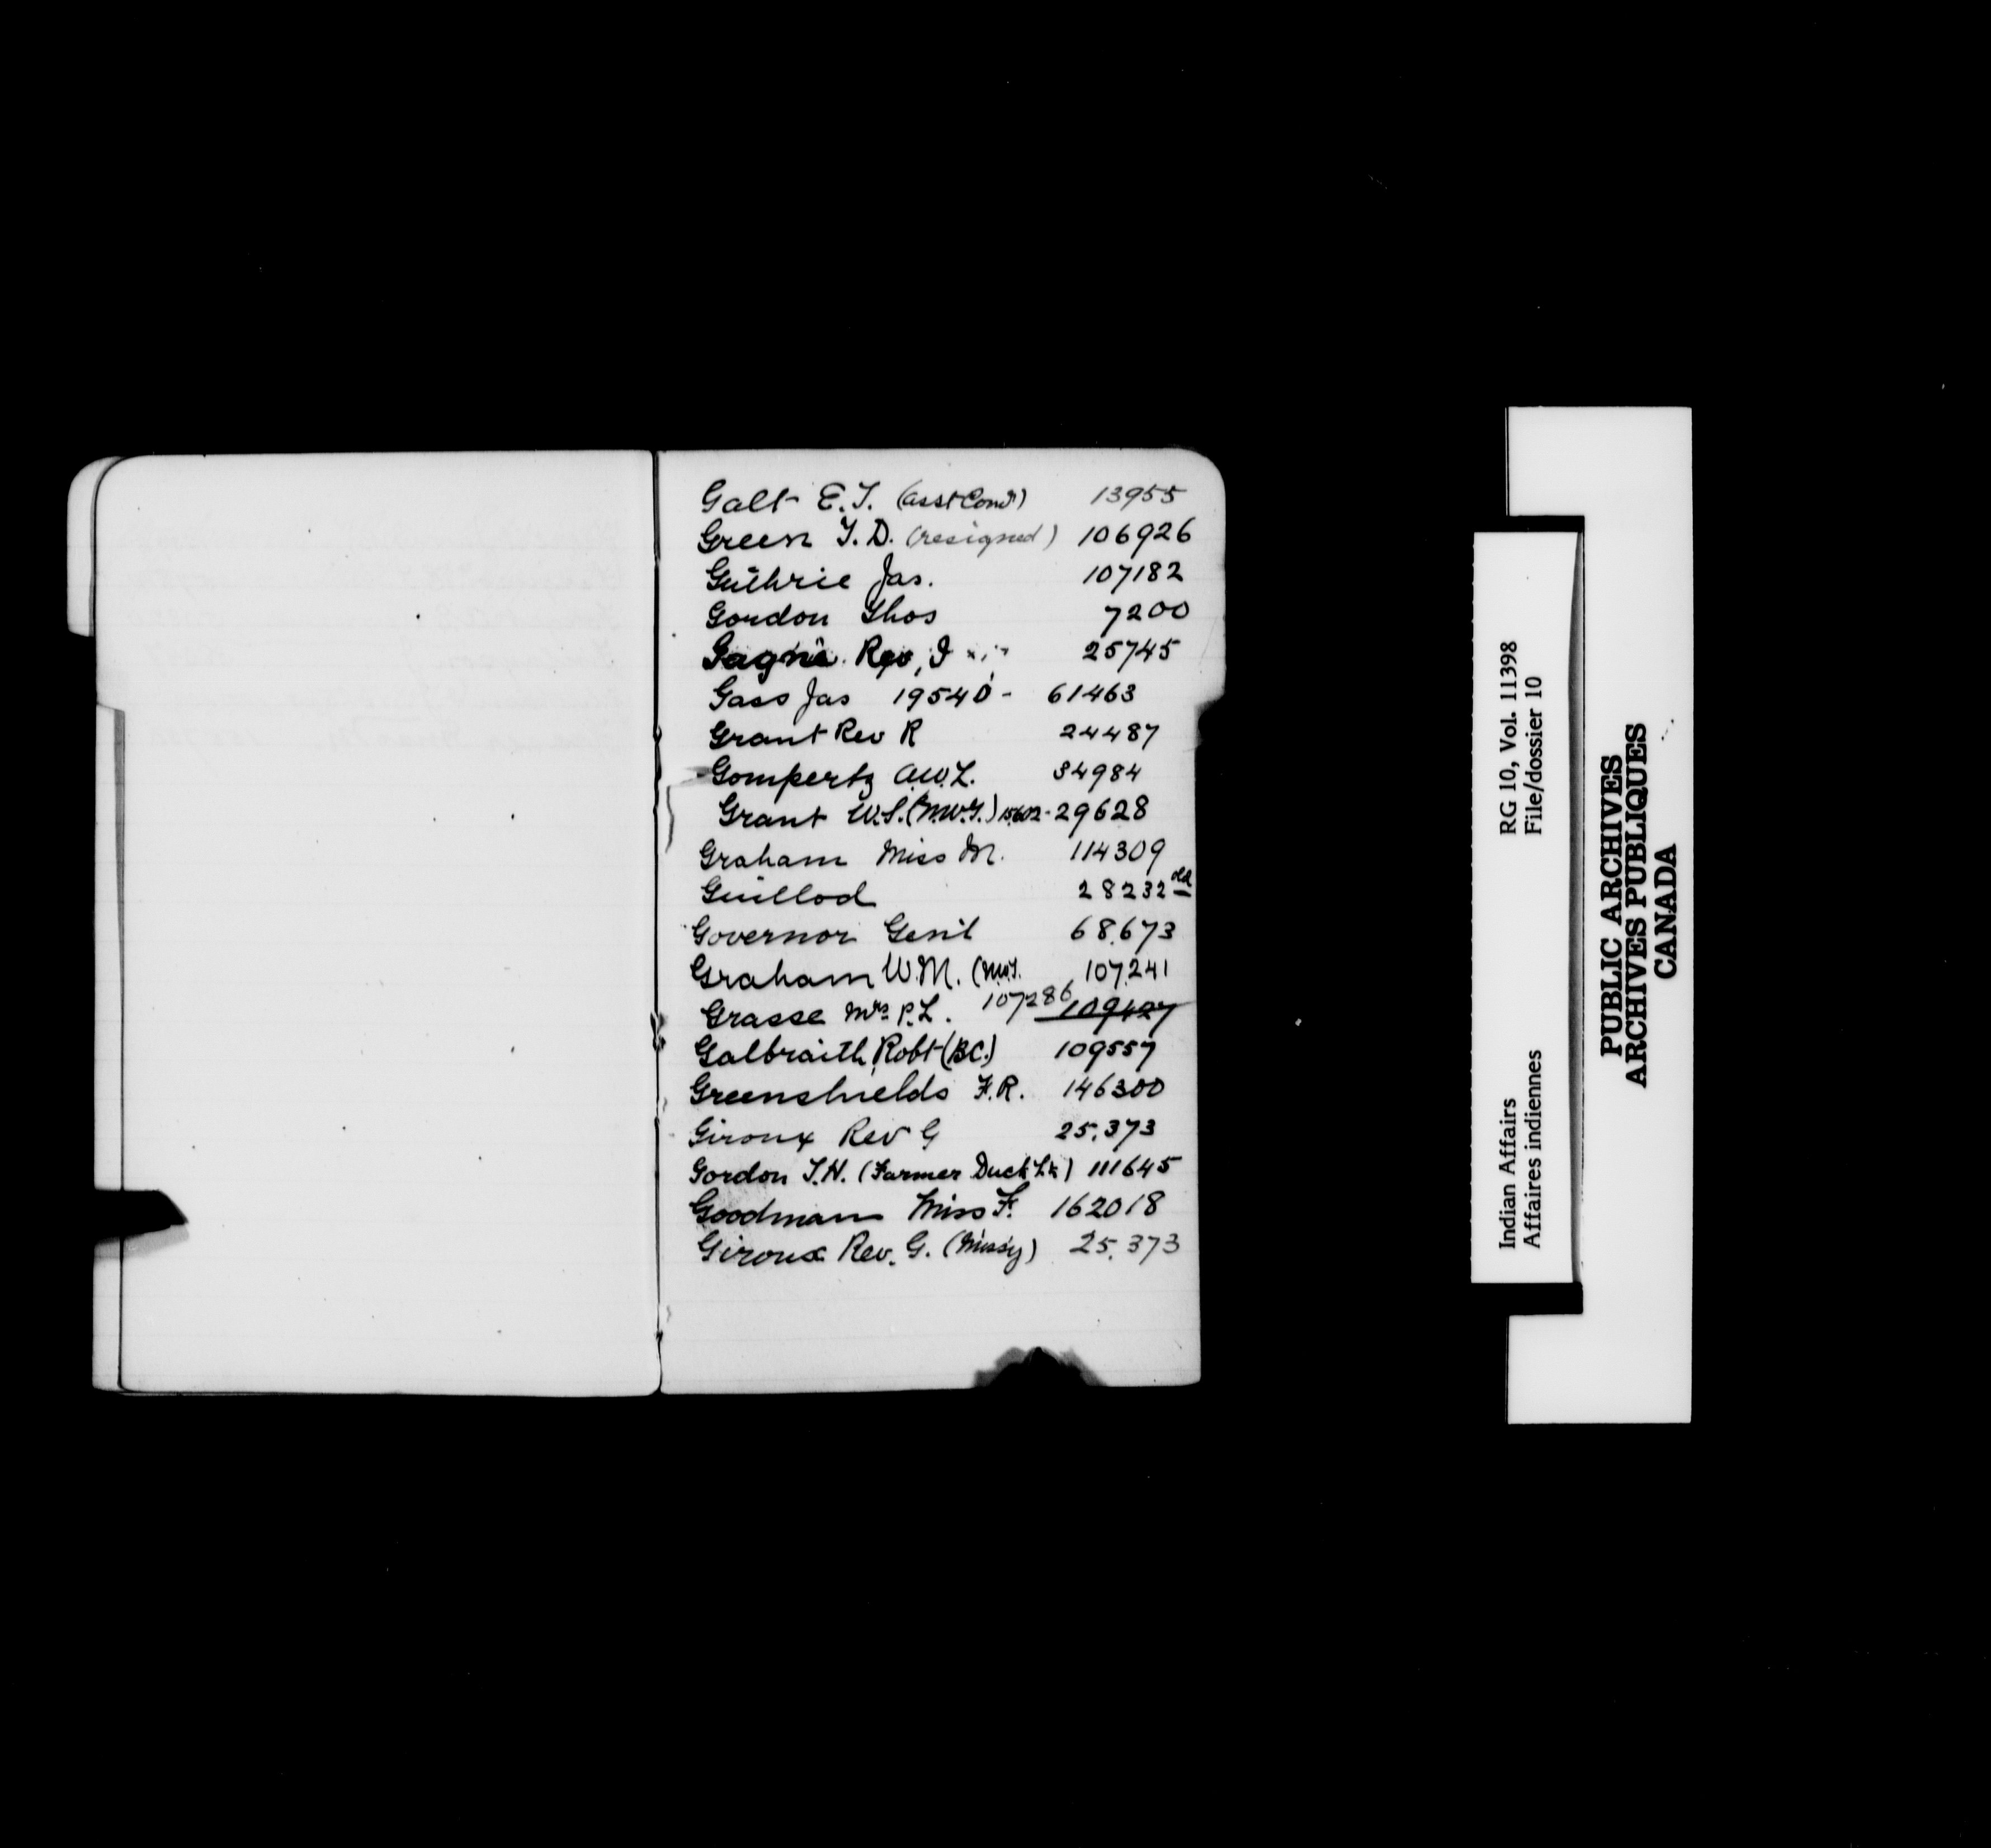 Galt E.T. (asst Comr) 13955
Green T.D. (resigned) 106926
Guthrie Jas. 107182
Gordon Thos 7200
Gagné Rev, J 25745
Gass Jas 19540 - 61463
Grant Rev R 24487
Gompertz A.W.L. 34984
Grant W.S. (M.W.T.) 15602 - 29628
Graham Miss M. 114309
Guillod 28232 old
Governor Genl 68,673
Graham W.M. ( 107,241
Grasse Mrs P.L. 107286 109427
Galbraith, Robt (B.C.) 109557
Greenshields F.R. 146300
Giroux Rev G 25,373
Gordon T.H. (Farmer Duck Lk) 111645
Goodman Miss F. 162018
Giroux Rev. G. (Missy) 25,373
RG 10, Vol. 11398
File/dossier 10
Indian Affairs
Affaires indiennes
PUBLIC ARCHIVES
ARCHIVES PUBLIQUES
CANADA